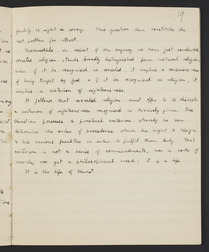 19
justify is right or wrong. This question then constitutes the
next problem for ethics.
Meanwhile, in respect of the enquiry we have just conducted,
revealed religion stands broadly distinguished from natural religion
since, if it be recognised as revealed, it implies a consciousness
of being taught by God & if it be recognised as religion, it
implies a criterion of righteousness.
It follows that revealed religion must offer to its disciple
a criterion of righteousness recognised as divinely given. The
Christian possesses a practical criterion whereby he can
determine the order of precedence which he ought to assign
to the various faculties in order to fulfil them duly. That
criterion is not a series of commandments, nor a code of
morals, nor yet a philosophical creed: it is a life
It is the life of Christ.